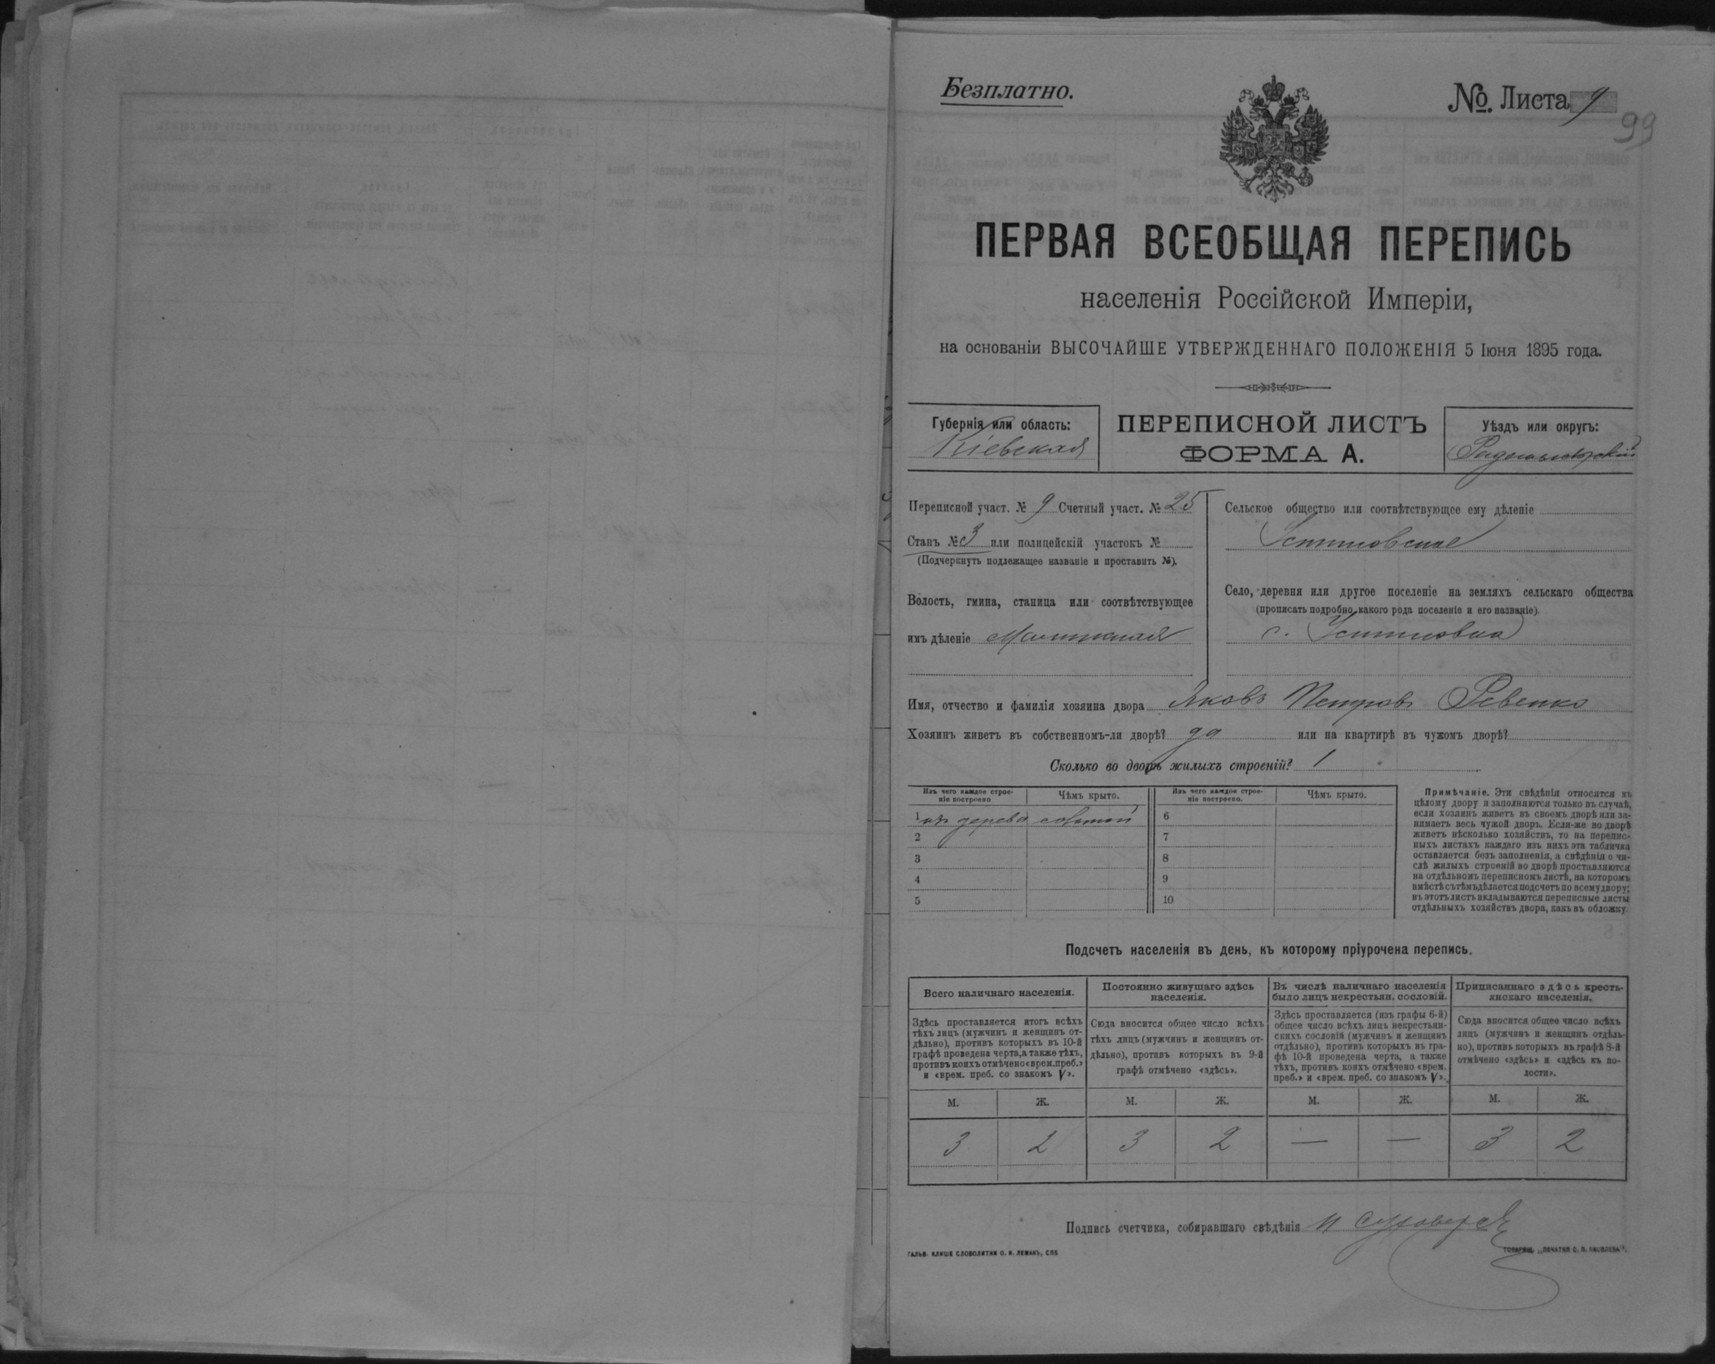 Безплатно.
№. Листа 9
99
ПЕРВАЯ ВСЕОБЩАЯ ПЕРЕПИСЬ
населенія Россійской Имперіи,
на основаніи ВЫСОЧАЙШЕ УТВЕРЖДЕННАГО ПОЛОЖЕНІЯ 5 Іюня 1895 года.
Губернія или область:
Кіевская
ПЕРЕПИСНОЙ ЛИСТЪ
ФОРМА А.
Уѣздъ или округъ:
Радомысльскій
Переписной участ. № 9 Счетный участ. № 25
Станъ № 3 или полицейскій участокъ №
(Подчеркнуть подлежащее названіе и проставить №).
Волость, гмина, станица или соотвѣтствующее
имъ дѣленіе
Сельское общество или соотвѣтствующее ему дѣленіе
Устиновское
Село, деревня или другое поселеніе на земляхъ сельскаго общества
(прописать подробно, какого рода поселеніе и его названіе).
с. Устиновка
Имя, отчество и фамилія хозяина двора Яковъ Петровъ Ревенко
Хозяинъ живетъ въ собственномъ-ли дворѣ? да или на квартирѣ въ чужомъ дворѣ?
Сколько во дворѣ жилыхъ строеній? 1
Изъ чего каждое строе-
ніе построено
Чѣмъ крыто.
Изъ чего каждое строе-
ніе построено.
Чѣмъ крыто.
1 изъ дерева соломой 6
2 7
3 8
4 9
5 10
Примѣчаніе. Эти свѣдѣнія относятся къ
цѣлому двору и заполняются только въ случаѣ,
если хозяинъ живетъ въ своемъ дворѣ или за-
нимаетъ весь чужой дворъ. Если-же во дворѣ
живетъ нѣсколько хозяйствъ, то на перепис-
ныхъ листахъ каждаго изъ нихъ эта табличка
оставляется безъ заполненія, а свѣдѣнія о чи-
слѣ жилыхъ строеній во дворѣ проставляются
на отдѣльномъ переписномъ листѣ, на которомъ
вмѣстѣ съ тѣмъ дѣлается подсчетъ по всему двору;
въ этотъ листъ вкладываются переписные листы
отдѣльныхъ хозяйствъ двора, какъ въ обложку.
Подсчетъ населенія въ день, къ которому пріурочена перепись.
Всего наличнаго населенія.
Здѣсь проставляется итогъ всѣхъ
тѣхъ лицъ (мужчинъ и женщинъ от-
дѣльно), противъ которыхъ въ 10-й
графѣ проведена черта, а также тѣхъ,
противъ коихъ отмѣчено «врем. преб.»
и «врем. преб. со знакомъ V».
Постоянно живущаго здѣсь
населенія.
Сюда вносится общее число всѣхъ
тѣхъ лицъ (мужчинъ и женщинъ от-
дѣльно), противъ которыхъ въ 9-й
графѣ отмѣчено «здѣсь».
Въ числѣ наличнаго населенія
было лицъ некрестьян. сословій.
Здѣсь проставляется (изъ графы 6-й)
общее число всѣхъ лицъ некрестьян-
скихъ сословій (мужчинъ и женщинъ
отдѣльно), противъ которыхъ въ гра-
фѣ 10-й проведена черта, а также
тѣхъ, противъ коихъ отмѣчено «врем.
преб.» и «врем. преб. со знакомъ V».
Приписаннаго здѣсь кресть-
янскаго населенія.
Сюда вносится общее число всѣхъ
лицъ (мужчинъ и женщинъ отдѣль-
но), противъ которыхъ въ графѣ 8-й
отмѣчено «здѣсь» и «здѣсь въ во-
лости».
М. Ж. М. Ж. М. Ж. М. Ж.
3 2 3 2 — — 3 2
Подпись счетчика, собиравшаго свѣдѣнія
ГАЛЬВ. КЛИШЕ СЛОВОЛИТНИ О. И. ЛЕМАНЪ, СПБ
ТОВАРИЩ. „ПЕЧАТНЯ С. П. ЯКОВЛЕВА".